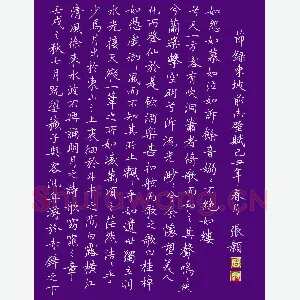 壬戌之秋七月既望蘇子與客泛舟遊於赤壁之下
清風徐來水波不興誦明月之詩歌窈窕之章
少焉月出於東山之上徘徊於斗牛之間白露橫江
水光接天縱一葦之所如凌萬頃之茫然浩浩乎
如憑虛御風而不知其所止飄飄乎如遺世獨立羽
化而登仙於是飲酒樂甚扣舷而歌之歌曰桂棹
兮蘭槳擊空明兮泝流光渺渺兮余懷望美人
兮天一方客有吹洞簫者倚歌而和之其聲嗚嗚然
如怨如慕如泣如訴餘音嫋嫋不絕如縷
節錄東坡前赤壁賦